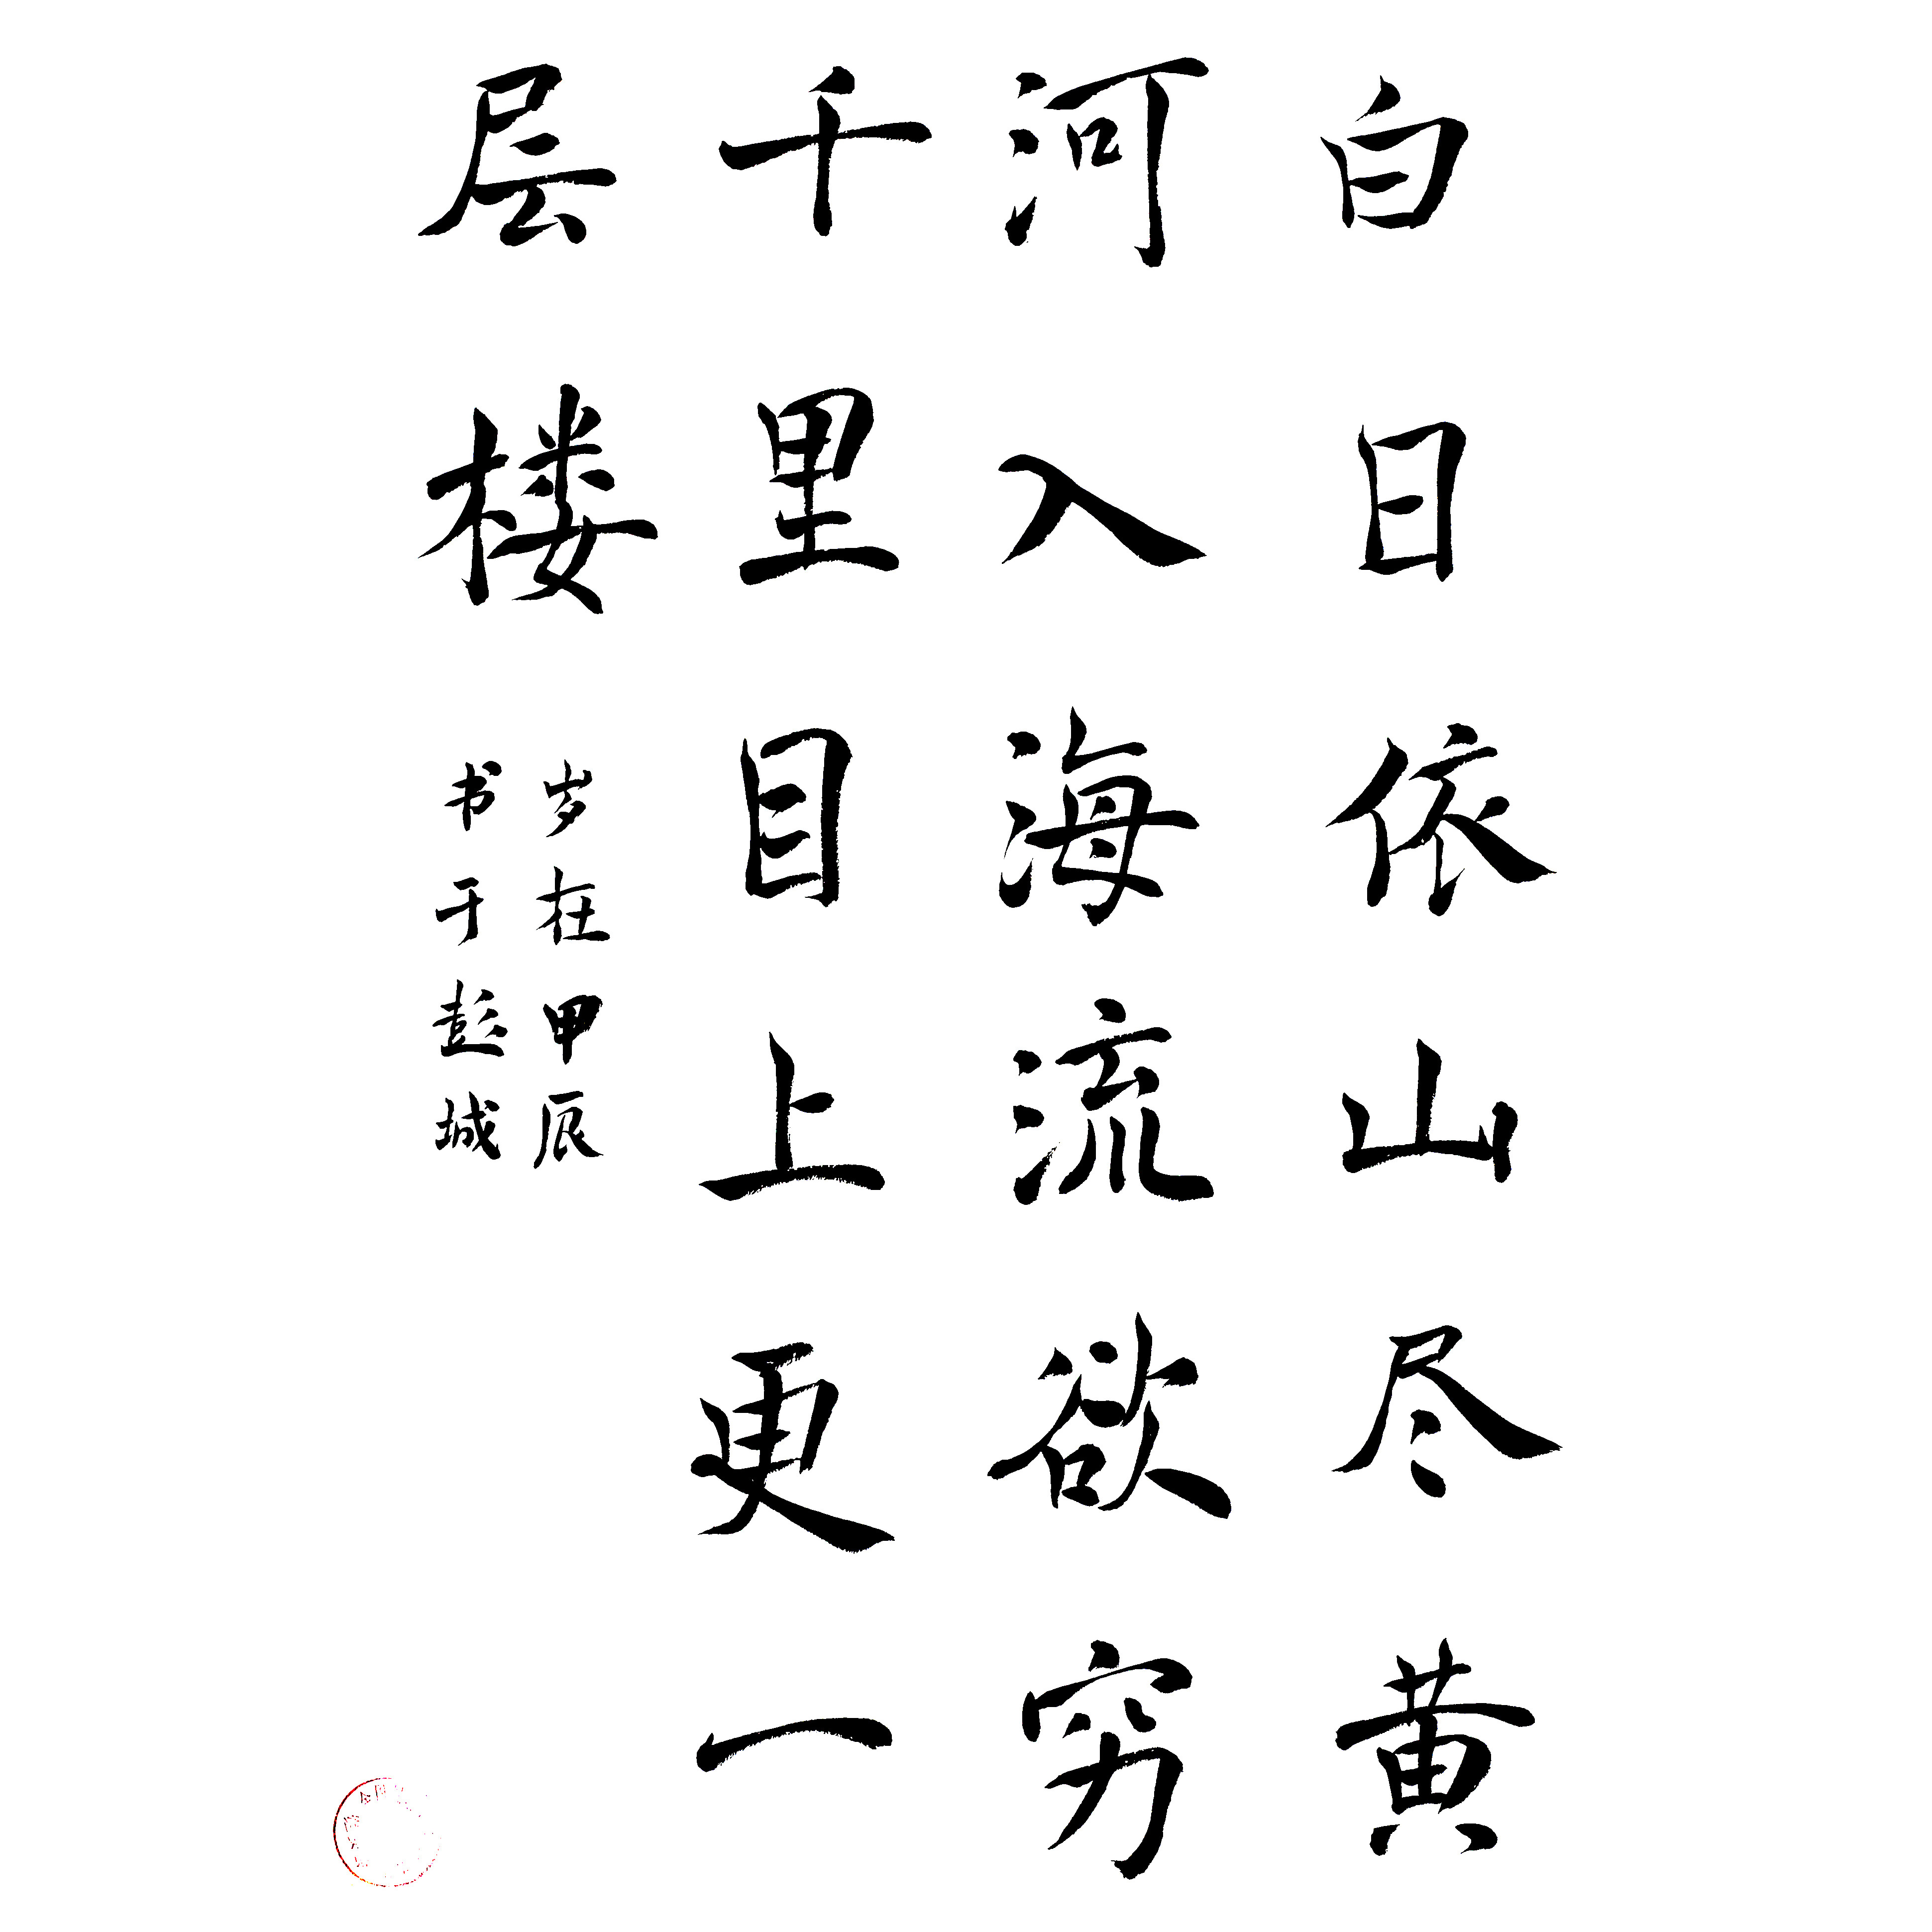 白日依山尽黄
河入海流欲穷
千里目上更一
层楼
岁在甲辰
书于彭城